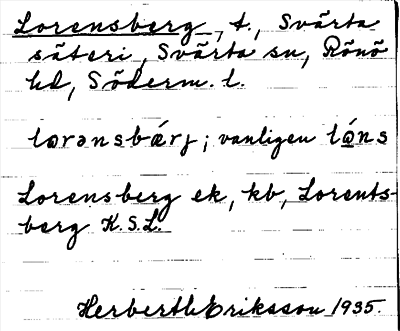 Lorensberg, t., Svärta
säteri, Svärta sn, Rönö
hd, Söderm. l.
lorənsbárj; vanligen lóns
Lorensberg ek, kb, Lorents-
berg K.S.L.
Herberth Eriksson 1935.